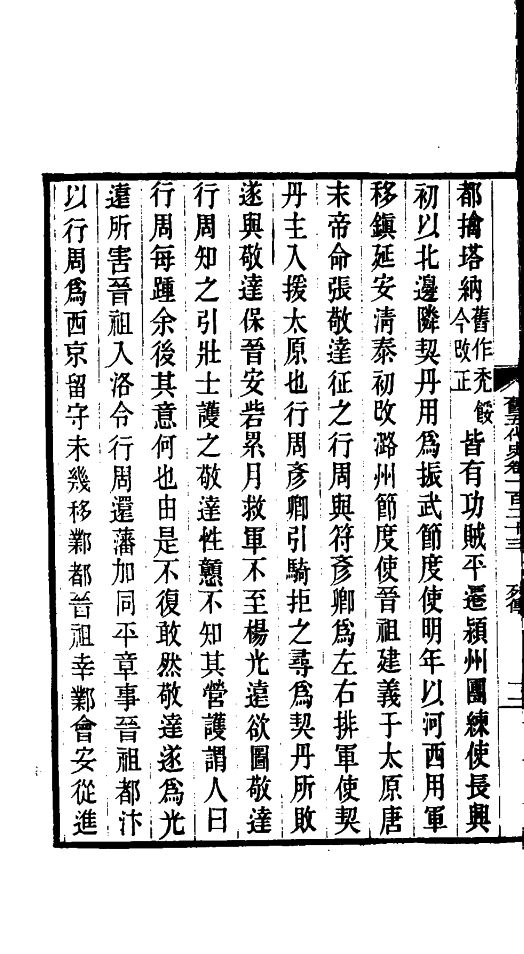 都擒塔納舊作禿餒今改正皆有功賊平遷潁州團練使長興
初以北邊隣契丹用為振武節度使明年以河西用軍
移鎮延安清泰初改潞州節度使晉祖建義于太原唐
末帝命張敬達征之行周與符彥卿為左右排軍使契
丹主入援太原也行周彥卿引騎拒之尋為契丹所敗
遂與敬達保晉安砦累月救軍不至楊光遠欲圖敬達
行周知之引壯士護之敬達性戇不知其營護謂人曰
行周每踵余後其意何也由是不復敢然敬達遂為光
遠所害晉祖入洛令行周還藩加同平章事晉祖都汴
以行周為西京留守未幾移鄴都晉祖幸鄴會安從進
舊五代史卷一百二十三 列傳 三